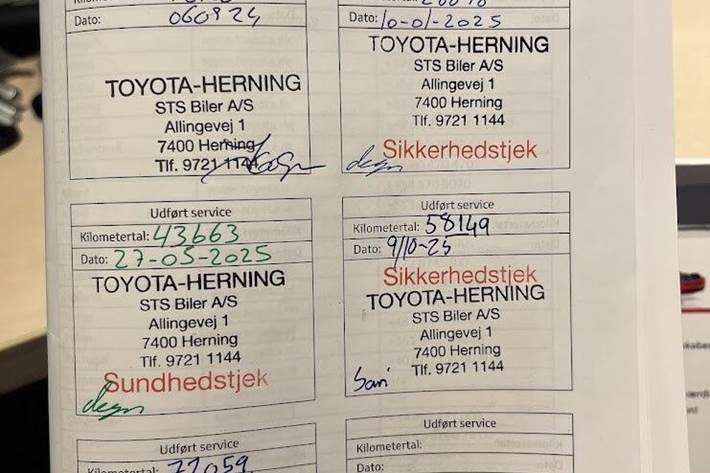 Dato: 060924
TOYOTA-HERNING
STS Biler A/S
Allingevej 1
7400 Herning
Tlf. 9721 1144
Dato: 10-01-2025
TOYOTA-HERNING
STS Biler A/S
Allingevej 1
7400 Herning
Tlf. 9721 1144
Sikkerhedstjek
Udført service
Kilometertal: 43663
Dato: 27-05-2025
TOYOTA-HERNING
STS Biler A/S
Allingevej 1
7400 Herning
Tlf. 9721 1144
Sundhedstjek
Udført service
Kilometertal: 58149
Dato: 9/10-25
Sikkerhedstjek
TOYOTA-HERNING
STS Biler A/S
Allingevej 1
7400 Herning
Tlf. 9721 1144
Udført service
Kilometertal: 72059
Udført service
Kilometertal:
Dato: